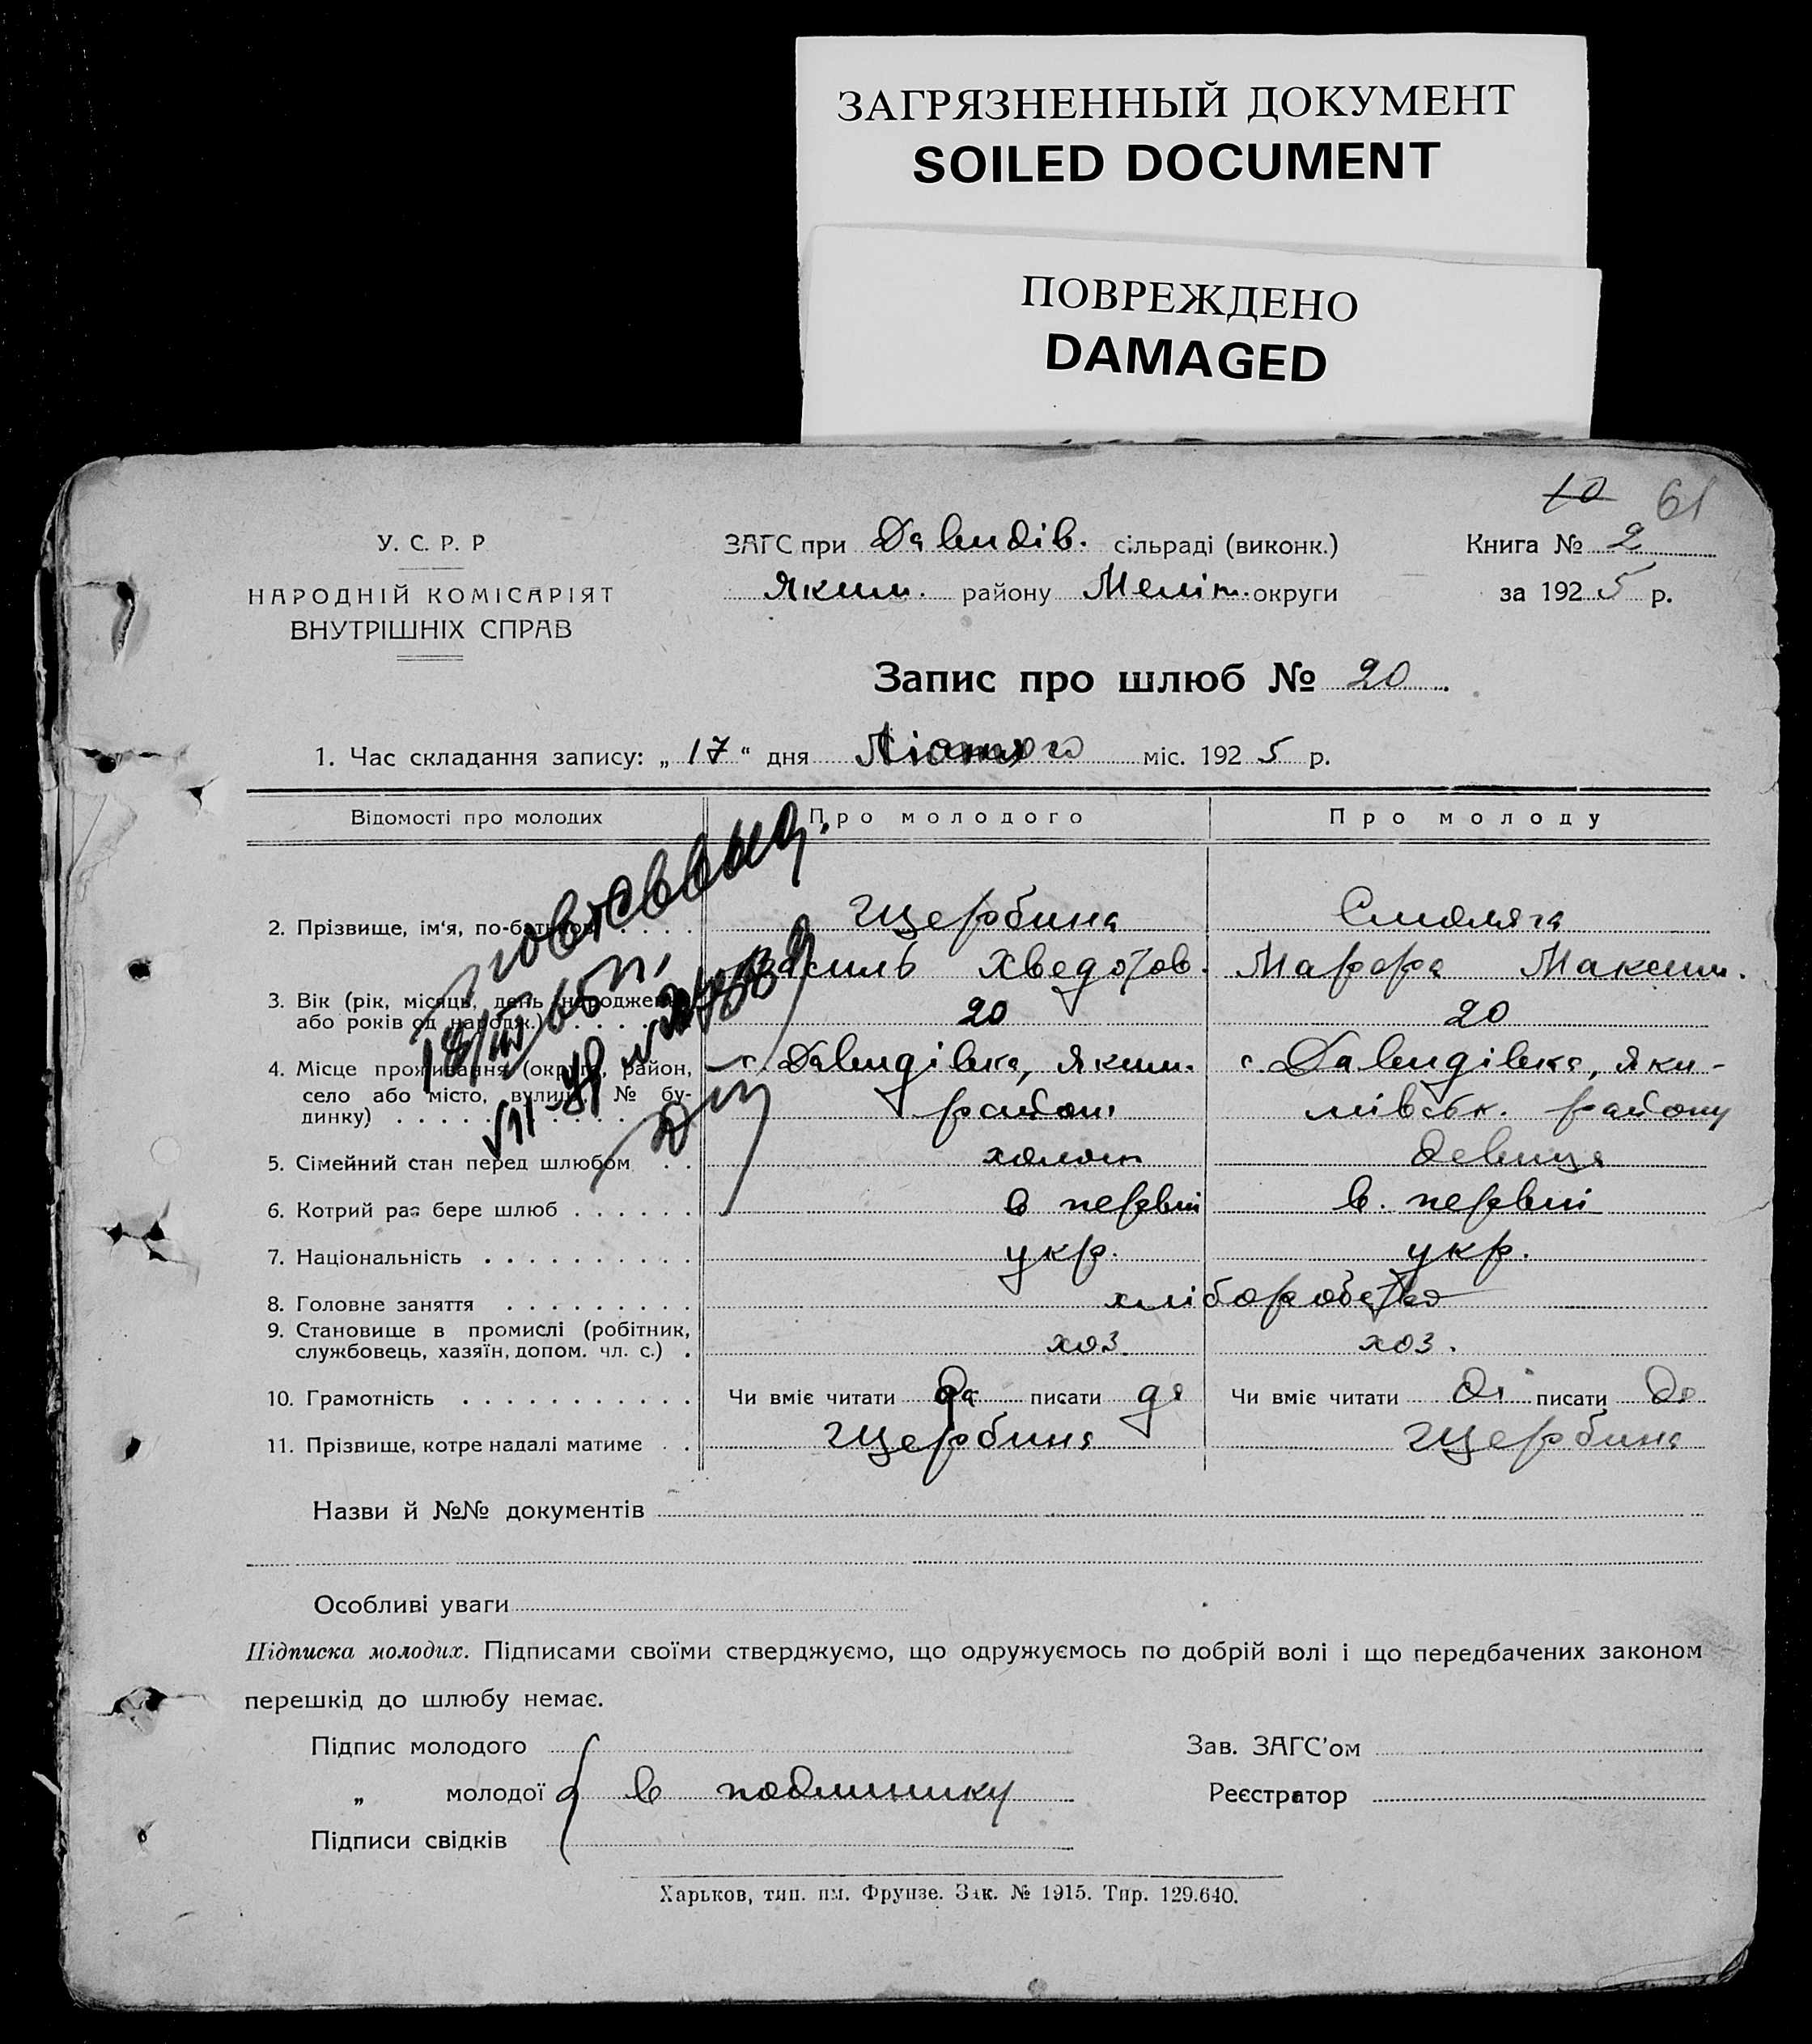 ЗАГРЯЗНЕННЫЙ ДОКУМЕНТ
SOILED DOCUMENT
ПОВРЕЖДЕНО
DAMAGED
10 61
У. С. Р. Р
НАРОДНІЙ КОМІСАРІЯТ
ВНУТРІШНІХ СПРАВ
ЗАГС при Давидів. сільраді (виконк.)
Яким. району Меліт. округи
Книга № 2
за 1925 р.
Запис про шлюб № 20
1. Час складання запису: „17“ дня Лютого міс. 1925 р.
Відомості про молодих Про молодого Про молоду
2. Прізвище, ім'я, по-батькові Щербина Смоляга
Василь Хведотов. Марфа Максим.
3. Вік (рік, місяць, день народження 20 20
або років од народж.)
4. Місце проживання (округа, район, с. Давидівка, Яким. с. Давидівка, Яки-
село або місто, вулиця, № бу- району мівськ. району
динку)
5. Сімейний стан перед шлюбом холост девиця
6. Котрий раз бере шлюб в первий в. первий
7. Національність укр. укр.
8. Головне заняття хліборобство
9. Становище в промислі (робітник, хоз. хоз.
службовець, хазяїн, допом. чл. с.)
10. Грамотність Чи вміє читати да писати да Чи вміє читати да писати да
11. Прізвище, котре надалі матиме Щербина Щербина
Назви й №№ документів
Особливі уваги
Підписка молодих. Підписами своїми стверджуємо, що одружуємось по добрій волі і що передбачених законом
перешкід до шлюбу немає.
Підпис молодого Зав. ЗАГС'ом
„ молодої в подлиннику Реєстратор
Підписи свідків
Харьков, тип. им. Фрунзе. Зак. № 1915. Тир. 129.640.